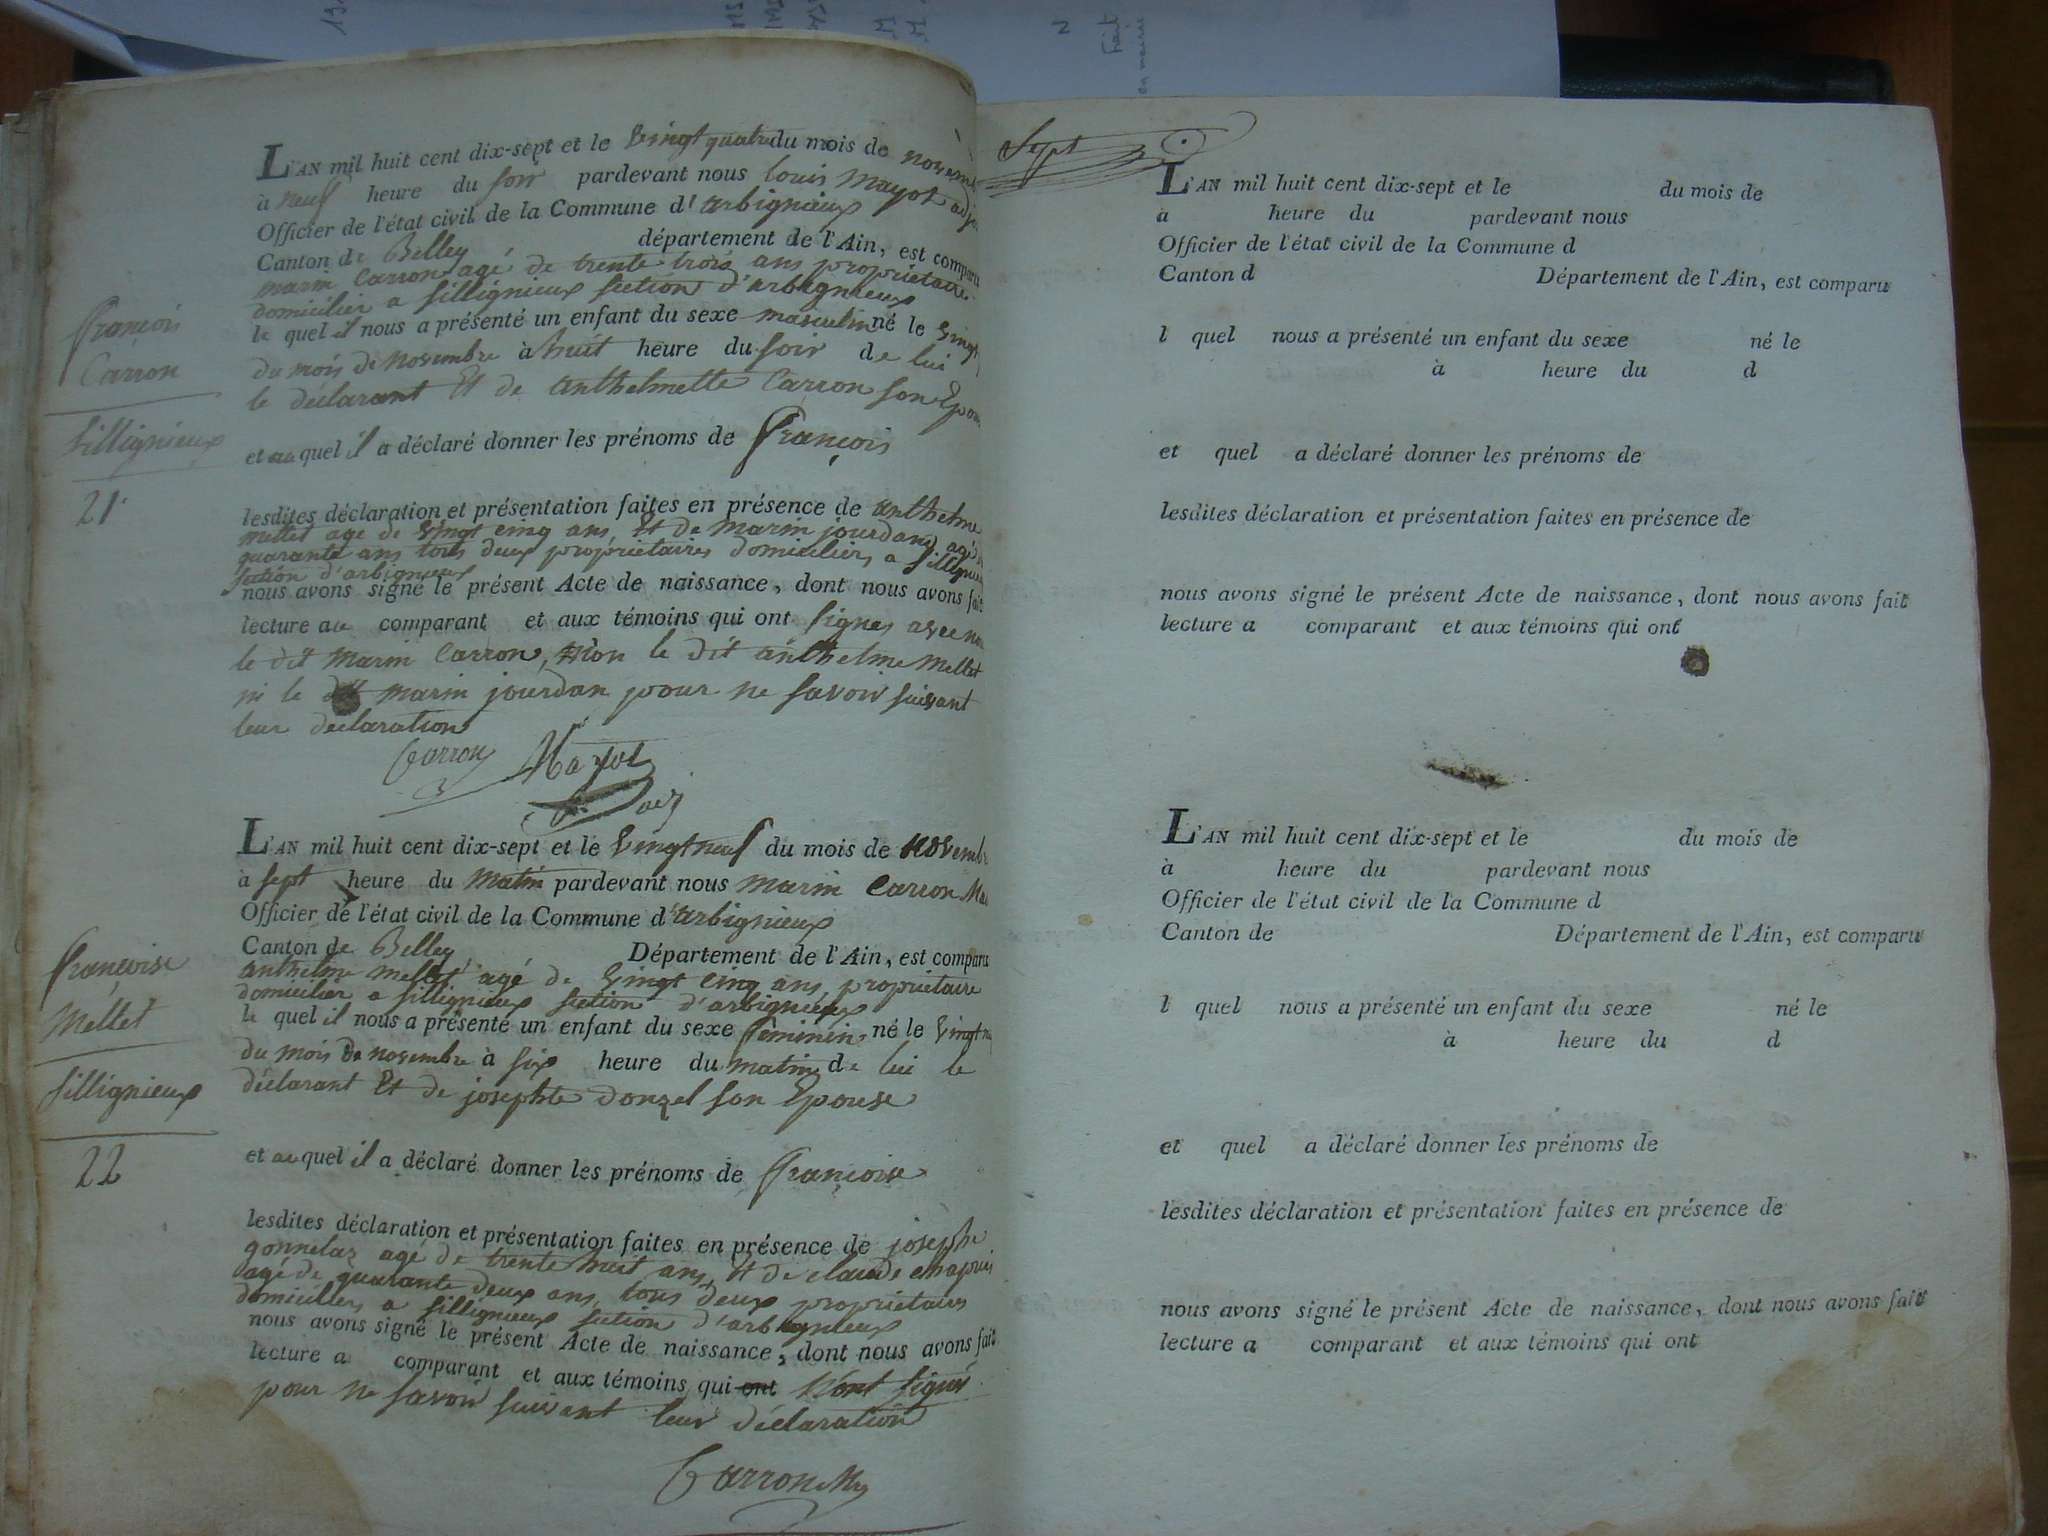 François
Carron
Sillignieux
21.
L'AN mil huit cent dix-sept et le Vingt quatre du mois de
à neuf heure du soir pardevant nous louis Mayot
Officier de l'état civil de la Commune d'arbignieux
Canton de Belley département de l'Ain, est comparu
marin Carron agé de trente trois ans propriétaire
domicilier a sillignieux section d'arbignieux
le quel il nous a présenté un enfant du sexe masculin né le
du mois de novembre à huit heure du soir de lui
le déclarant Et de anthelmette Carron son
et au quel il a déclaré donner les prénoms de François
lesdites déclaration et présentation faites en présence de anthelme
mellet age de Vingt cinq ans, Et de marin jourdan agé
quarante ans tous deux propriétaires domiciliers a
section d'arbignieux
nous avons signé le présent Acte de naissance, dont nous avons fait
lecture au comparant et aux témoins qui ont signes avec
le dit marin Carron, non le dit anthelme mellet
ni le dit marin jourdan pour ne savoir suivant
leur declaration
Carron Mayot
adj
Françoise
Mellet
Sillignieux
22
L'AN mil huit cent dix-sept et le Vingt neuf du mois de novembre
à sept heure du Matin pardevant nous marin Carron
Officier de l'état civil de la Commune d'arbignieux
Canton de Belley Département de l'Ain, est comparu
anthelme mellet agé de Vingt cinq ans, propriétaire
domicilier a sillignieux section d'arbignieux
le quel il nous a présenté un enfant du sexe féminin né le
du mois de novembre à six heure du matin de lui le
déclarant Et de josephte Donzel son Epouse
et au quel il a déclaré donner les prénoms de Françoise
lesdites déclaration et présentation faites en présence de joseph
gonnelaz agé de trente huit ans, Et de claude
agé de quarante deux ans, tous deux propriétaires
domiciliers a sillignieux section d'arbignieux
nous avons signé le présent Acte de naissance, dont nous avons fait
lecture a comparant et aux témoins qui ont N'ont signé
pour ne savoir suivant leur déclaration
Carron
Sept
L'AN mil huit cent dix-sept et le du mois de
à heure du pardevant nous
Officier de l'état civil de la Commune d
Canton d Département de l'Ain, est comparu
l quel nous a présenté un enfant du sexe né le
à heure du d
et quel a déclaré donner les prénoms de
lesdites déclaration et présentation faites en présence de
nous avons signé le présent Acte de naissance, dont nous avons fait
lecture a comparant et aux témoins qui ont
L'AN mil huit cent dix-sept et le du mois de
à heure du pardevant nous
Officier de l'état civil de la Commune d
Canton de Département de l'Ain, est comparu
l quel nous a présenté un enfant du sexe né le
à heure du d
et quel a déclaré donner les prénoms de
lesdites déclaration et présentation faites en présence de
nous avons signé le présent Acte de naissance, dont nous avons fait
lecture a comparant et aux témoins qui ont